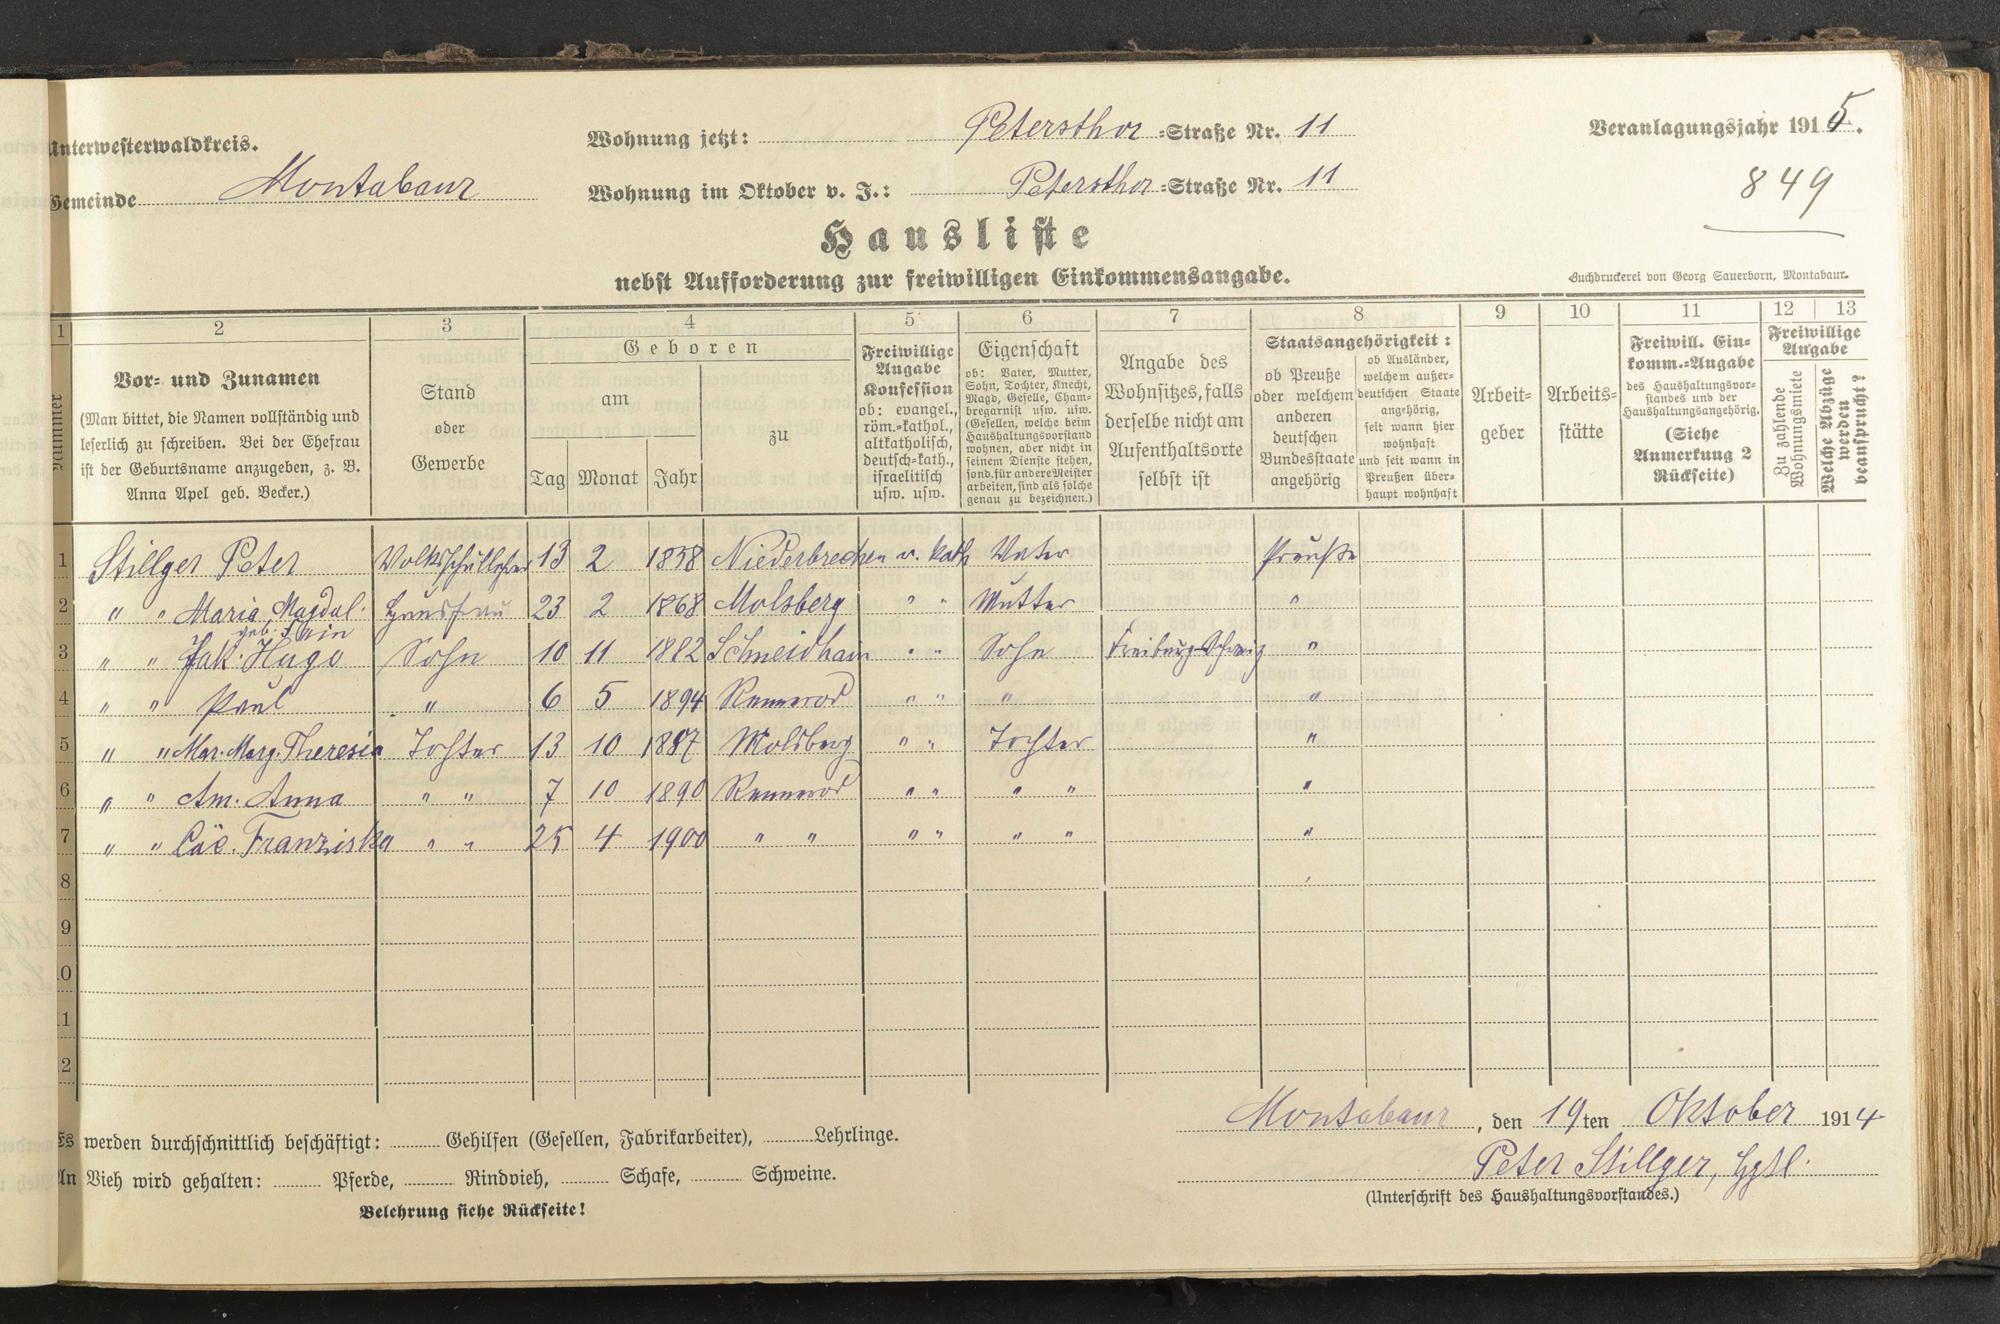 Unterwesterwaldkreis.
Gemeinde Montabaur
Wohnung jetzt: Petersthor =Straße Nr. 11
Wohnung im Oktober v. J.: Petersthor =Straße Nr. 11
Veranlagungsjahr 1915.
849
Hausliste
nebst Aufforderung zur freiwilligen Einkommensangabe.
Buchdruckerei von Georg Sauerborn, Montabaur.
1 2 3 4 5 6 7 8 9 10 11 12 13
Nummer
Vor- und Zunamen
(Man bittet, die Namen vollständig und
leserlich zu schreiben. Bei der Ehefrau
ist der Geburtsname anzugeben, z. B.
Anna Apel geb. Becker.)
Stand
oder
Gewerbe
Geboren
am
Tag Monat Jahr
zu
Freiwillige
Angabe
Konfession
ob: evangel.,
röm.-kathol.,
altkatholisch,
deutsch-kath.,
israelitisch
usw. usw.
Eigenschaft
ob: Vater, Mutter,
Sohn, Tochter, Knecht,
Magd, Geselle, Cham-
bregarnist usw. usw.
(Gesellen, welche beim
Haushaltungsvorstand
wohnen, aber nicht in
seinem Dienste stehen,
sond. für andere Meister
arbeiten, sind als solche
genau zu bezeichnen.)
Angabe des
Wohnsitzes, falls
derselbe nicht am
Aufenthaltsorte
selbst ist
Staatsangehörigkeit:
ob Preuße
oder welchem
anderen
deutschen
Bundesstaate
angehörig
ob Ausländer,
welchem außer-
deutschen Staate
angehörig,
seit wann hier
wohnhaft
und seit wann in
Preußen über-
haupt wohnhaft
Arbeit-
geber
Arbeits-
stätte
Freiwill. Ein-
komm.-Angabe
des Haushaltungsvor-
standes und der
Haushaltungsangehörig.
(Siehe
Anmerkung 2
Rückseite)
Freiwillige
Angabe
Zu zahlende
Wohnungsmiete
Welche Abzüge
werden
beansprucht?
1 Stillger Peter Volksschullehrer 13 2 1858 Niederbrechen r. kath. Vater Preuße
2 " " Maria Magdal. Hausfrau 23 2 1868 Molsberg " " Mutter "
geb.
3 " " Jak. Hugo Sohn 10 11 1882 Schneidhain " " Sohn Freiburg Schweiz "
4 " " Paul " 6 5 1894 Rennerod " " " "
5 " " Mar. Marg. Theresia Tochter 13 10 1887 Molsberg " " Tochter "
6 " " Am. Anna " " 7 10 1890 Rennerod " " " " "
7 " " Cäc. Franziska " " 25 4 1900 " " " " " " "
8
9
10
11
12
Montabaur, den 19ten Oktober 1914
Es werden durchschnittlich beschäftigt: Gehilfen (Gesellen, Fabrikarbeiter), Lehrlinge.
Peter Stillger,
An Vieh wird gehalten: Pferde, Rindvieh, Schafe, Schweine.
(Unterschrift des Haushaltungsvorstandes.)
Belehrung siehe Rückseite!